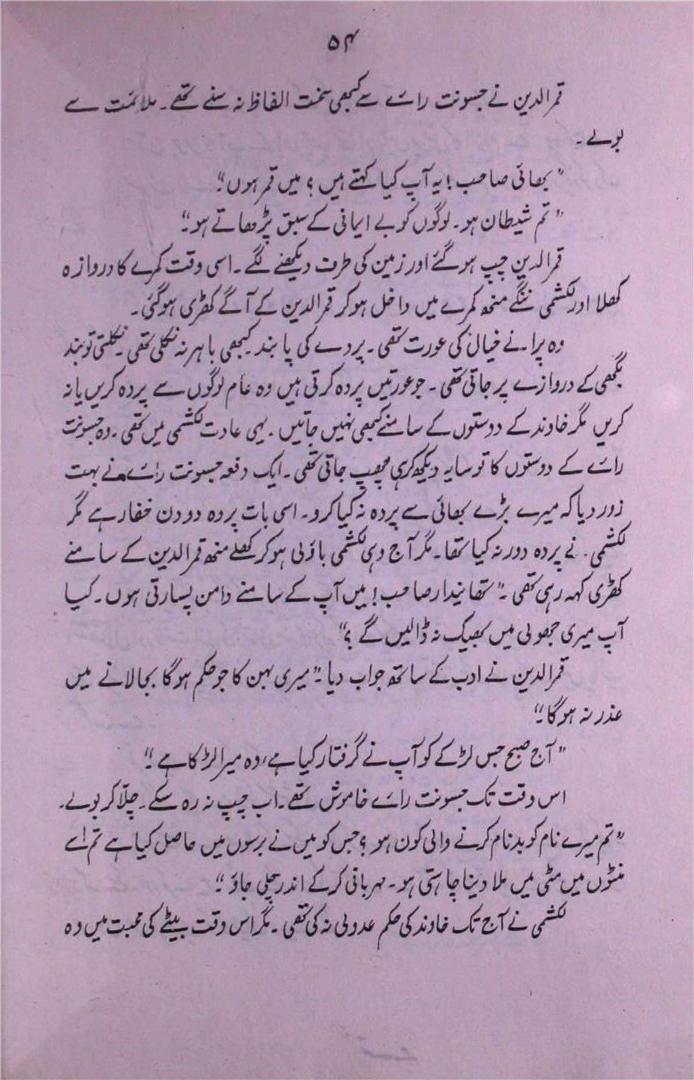 ۵۴
قمرالدین نے جسونت رائے سے کبھی سخت الفاظ نہ سنے تھے۔ ملائمت سے
بولے۔
"بھائی صاحب! یہ آپ کیا کہتے ہیں؟ میں قمر ہوں"۔
"تم شیطان ہو۔ لوگوں کو بے ایمانی کے سبق پڑھاتے ہو"۔
قمرالدین چپ ہو گئے اور زمین کی طرف دیکھنے لگے۔ اسی وقت کمرے کا دروازہ
کھلا اور لکشمی ننگے منھ کمرے میں داخل ہو کر قمرالدین کے آگے کھڑی ہو گئی۔
وہ پرانے خیال کی عورت تھی۔ پردے کی پابند کبھی باہر نہ نکلی تھی۔ نکلتی تو بند
بگھی کے دروازے پر جاتی تھی۔ جو عورتیں پردہ کرتی ہیں وہ عام لوگوں سے پردہ کریں یا نہ
کریں مگر خاوند کے دوستوں کے سامنے کبھی نہیں جاتیں۔ یہی عادت لکشمی میں تھی۔ وہ جسونت
رائے کے دوستوں کا تو سایہ دیکھ کر ہی چھپ جاتی تھی۔ ایک دفعہ جسونت رائے نے بہت
زور دیا کہ میرے بڑے بھائی سے پردہ نہ کیا کرو۔ اسی بات پر وہ دو دن خفا رہے مگر
لکشمی نے پردہ دور نہ کیا تھا۔ مگر آج وہی لکشمی باؤلی ہو کر کھلے منھ قمرالدین کے سامنے
کھڑی کہہ رہی تھی۔ "تھانیدار صاحب! میں آپ کے سامنے دامن پسارتی ہوں۔ کیا
آپ میری جھولی میں بھیک نہ ڈالیں گے؟"
قمرالدین نے ادب کے ساتھ جواب دیا۔ "میری بہن کا جو حکم ہوگا بجا لانے میں
عذر نہ ہوگا"۔
"آج صبح جس لڑکے کو آپ نے گرفتار کیا ہے، وہ میرا لڑکا ہے!"
اس وقت تک جسونت رائے خاموش تھے۔ اب چپ نہ رہ سکے۔ چلّا کر بولے۔
"تم میرے نام کو بدنام کرنے والی کون ہو؟ جس کو میں نے برسوں میں حاصل کیا ہے تم اسے
منٹوں میں مٹی میں ملا دینا چاہتی ہو۔ مہربانی کر کے اندر چلی جاؤ"۔
لکشمی نے آج تک خاوند کی حکم عدولی نہ کی تھی۔ مگر اس وقت بیٹے کی محبت میں وہ